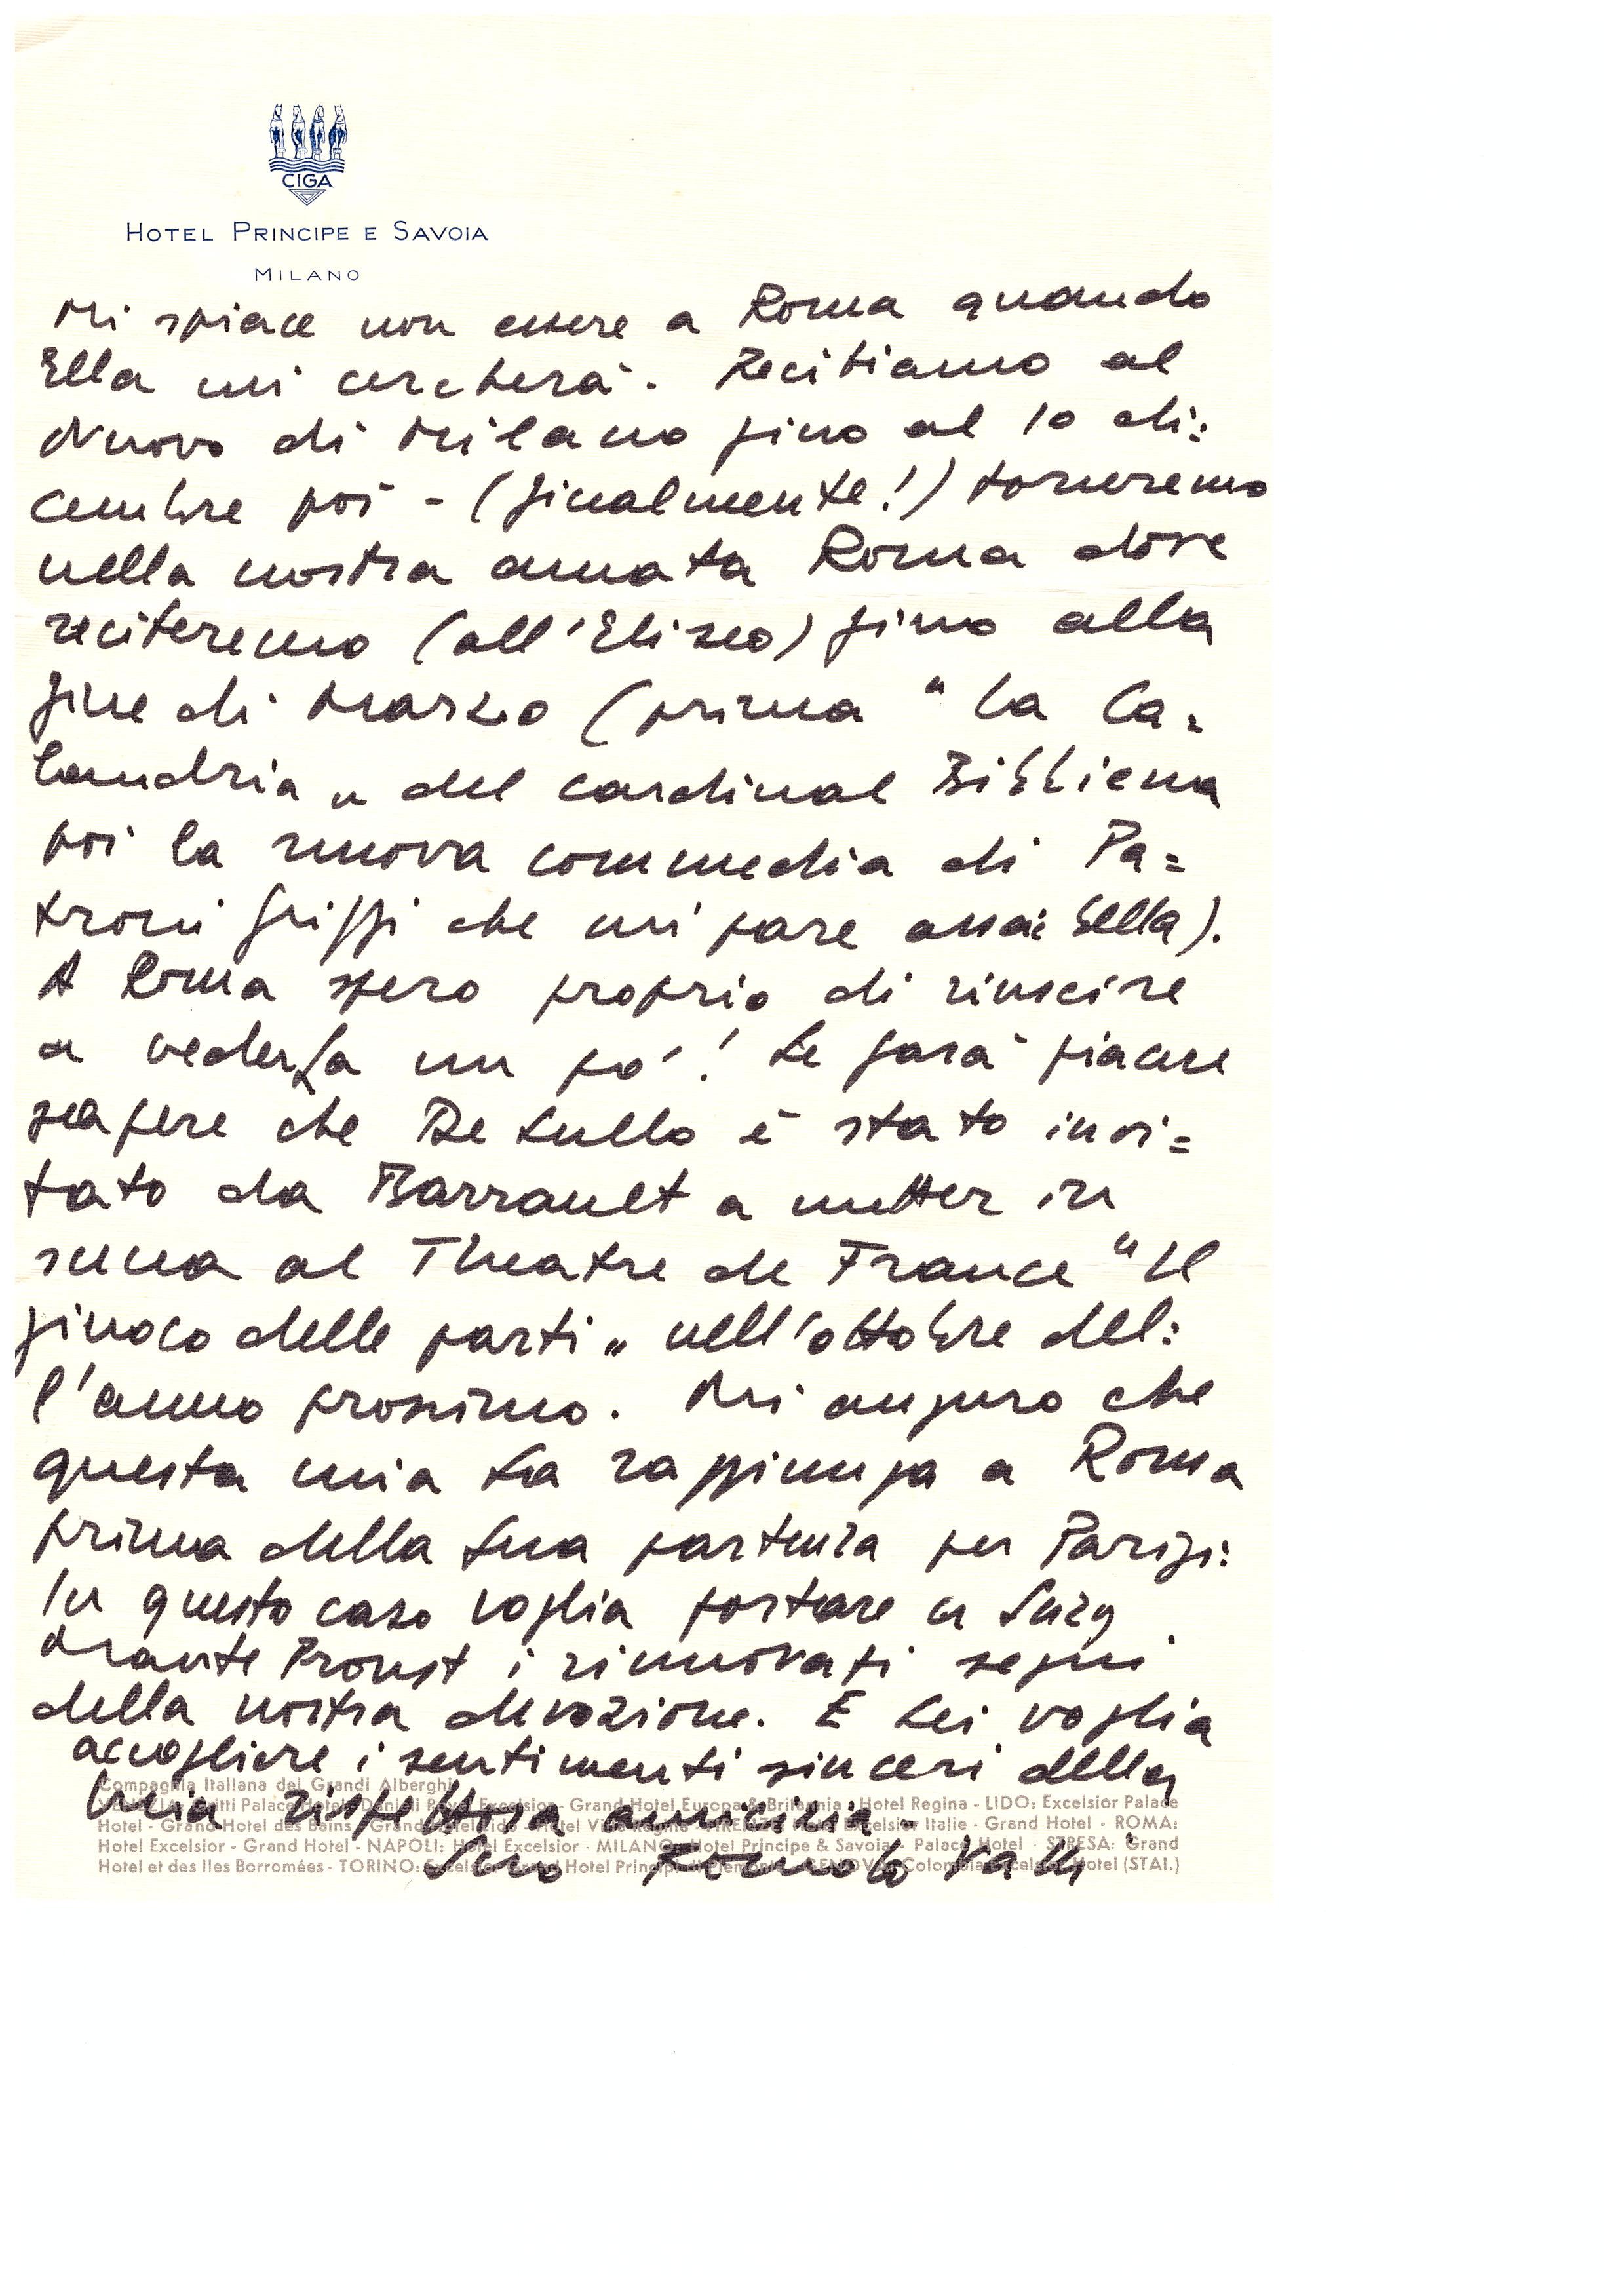 CIGA
HOTEL PRINCIPE E SAVOIA
MILANO
Mi spiace non essere a Roma quando
Ella mi cercherà. Recitiamo al
Nuovo di Milano fino al 10 di:
cembre poi - (finalmente!) torneremo
nella nostra amata Roma dove
reciteremo (all'Eliseo) fino alla
fine di Marzo (prima "La Ca=
landria" del cardinal Bibbiena
poi la nuova commedia di Pa=
troni Griffi che mi pare assai bella).
A Roma spero proprio di riuscire
a vederLa un po'! Le farà piacere
sapere che De Lullo è stato invi=
tato da Barrault a metter in
scena al Theatre de France "Il
giuoco delle parti" nell'ottobre del:
l'anno prossimo. Mi auguro che
questa mia La raggiunga a Roma
prima della Sua partenza per Parigi:
In questo caso voglia portare a Suzy
Mante Proust i rinnovati segni
della nostra devozione. E Lei voglia
accogliere i sentimenti sinceri della
Compagnia Italiana dei Grandi Alberghi
mia rispettosa amicizia -
Palace Hotel Excelsior - Grand Hotel Europa & Britannia - Hotel Regina - LIDO: Excelsior Palace
Hotel - Grand Hotel des Bains - Excelsior Italie - Grand Hotel - ROMA:
Hotel Excelsior - Grand Hotel - NAPOLI: Hotel Excelsior - MILANO: Hotel Principe & Savoia - Palace Hotel - STRESA: Grand
Suo Romolo Valli
Hotel et des Iles Borromées - TORINO: Hotel Principi di Piemonte - GENOVA: Colombia Excelsior Hotel (STAI.)